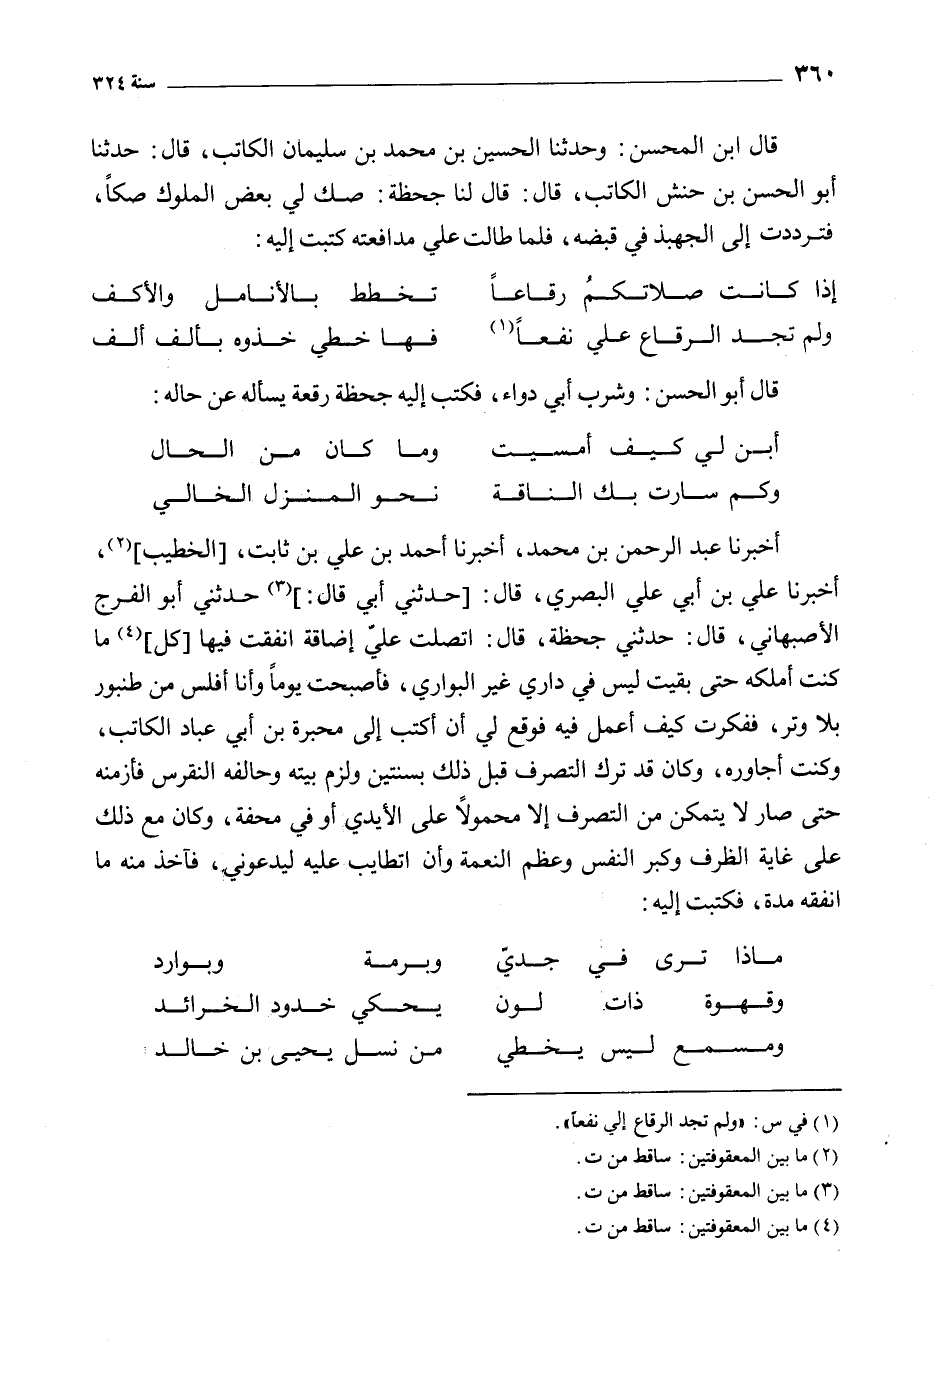 ٣٦٠ سنة ٣٢٤
قال ابن المحسن: وحدثنا الحسين بن محمد بن سليمان الكاتب، قال: حدثنا
أبو الحسن بن حنش الكاتب، قال: قال لنا جحظة: صك لي بعض الملوك صكاً،
فترددت إلى الجهبذ في قبضه، فلما طالت علي مدافعته كتبت إليه:
إذا كانت صلاتكمُ رقاعاً تخطط بالأنامل والأكف
ولم تجد الرقاع علي نفعاً(١) فها خطي خذوه بألف ألف
قال أبو الحسن: وشرب أبي دواء، فكتب إليه جحظة رقعة يسأله عن حاله:
أبن لي كيف أمسيت وما كان من الحال
وكم سارت بك الناقة نحو المنزل الخالي
أخبرنا عبد الرحمن بن محمد، أخبرنا أحمد بن علي بن ثابت، [الخطيب](٢)،
أخبرنا علي بن أبي علي البصري، قال: [حدثني أبي قال:](٣) حدثني أبو الفرج
الأصبهاني، قال: حدثني جحظة، قال: اتصلت عليّ إضاقة انفقت فيها [كل](٤) ما
كنت أملكه حتى بقيت ليس في داري غير البواري، فأصبحت يوماً وأنا أفلس من طنبور
بلا وتر، ففكرت كيف أعمل فيه فوقع لي أن أكتب إلى محبرة بن أبي عباد الكاتب،
وكنت أجاوره، وكان قد ترك التصرف قبل ذلك بسنتين ولزم بيته وحالفه النقرس فأزمنه
حتى صار لا يتمكن من التصرف إلا محمولاً على الأيدي أو في محفة، وكان مع ذلك
على غاية الظرف وكبر النفس وعظم النعمة وأن اتطايب عليه ليدعوني، فآخذ منه ما
انفقه مدة، فكتبت إليه:
ماذا ترى في جديّ وبرمة وبوارد
وقهوة ذات لون يحكي خدود الخرائد
ومسمع ليس يخطي من نسل يحيى بن خالد
(١) في س: «ولم تجد الرقاع إلي نفعاً».
(٢) ما بين المعقوفتين: ساقط من ت.
(٣) ما بين المعقوفتين: ساقط من ت.
(٤) ما بين المعقوفتين: ساقط من ت.